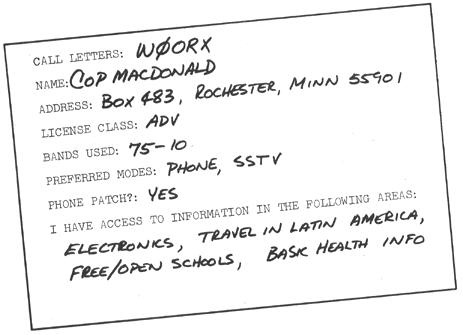 CALL LETTERS: WØORX
NAME: COP MACDONALD
ADDRESS: BOX 483, ROCHESTER, MINN 55901
LICENSE CLASS: ADV
BANDS USED: 75-10
PREFERRED MODES: PHONE, SSTV
PHONE PATCH?: YES
I HAVE ACCESS TO INFORMATION IN THE FOLLOWING AREAS:
ELECTRONICS, TRAVEL IN LATIN AMERICA,
FREE/OPEN SCHOOLS, BASIC HEALTH INFO